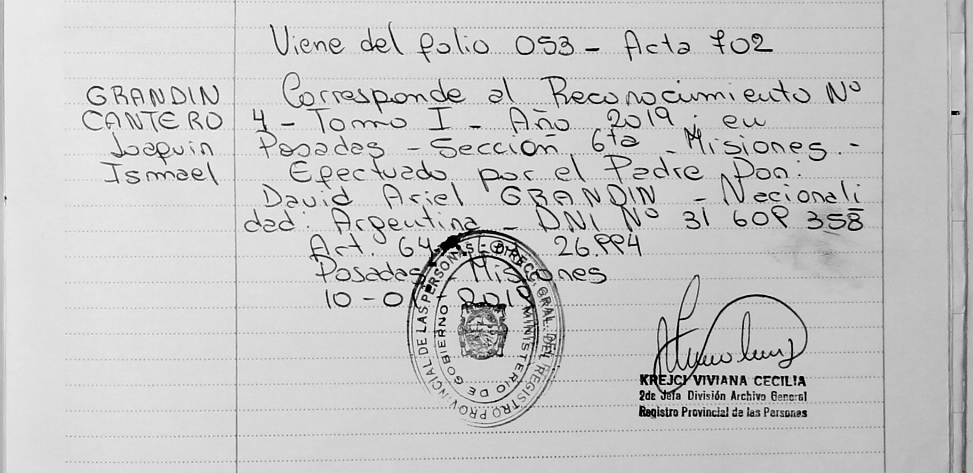 Viene del folio 053 - Acta 702
GRANDIN
CANTERO
Joaquin
Ismael
Corresponde al Reconocimiento Nº
4 - Tomo I - Año 2019 ; en
Posadas - Sección 6ta - Misiones. -
Efectuado por el Padre Don:
David Ariel GRANDIN - Nacionali
dad: Argentina - DNI Nº 31 609 358
Art. 64 26.994
Posadas - Misiones
10 - 0
DIRECC. GRAL. DEL REGISTRO PROVINCIAL DE LAS PERSONAS
MINISTERIO DE GOBIERNO
KREJCI VIVIANA CECILIA
2de Jefa División Archivo General
Registro Provincial de las Personas